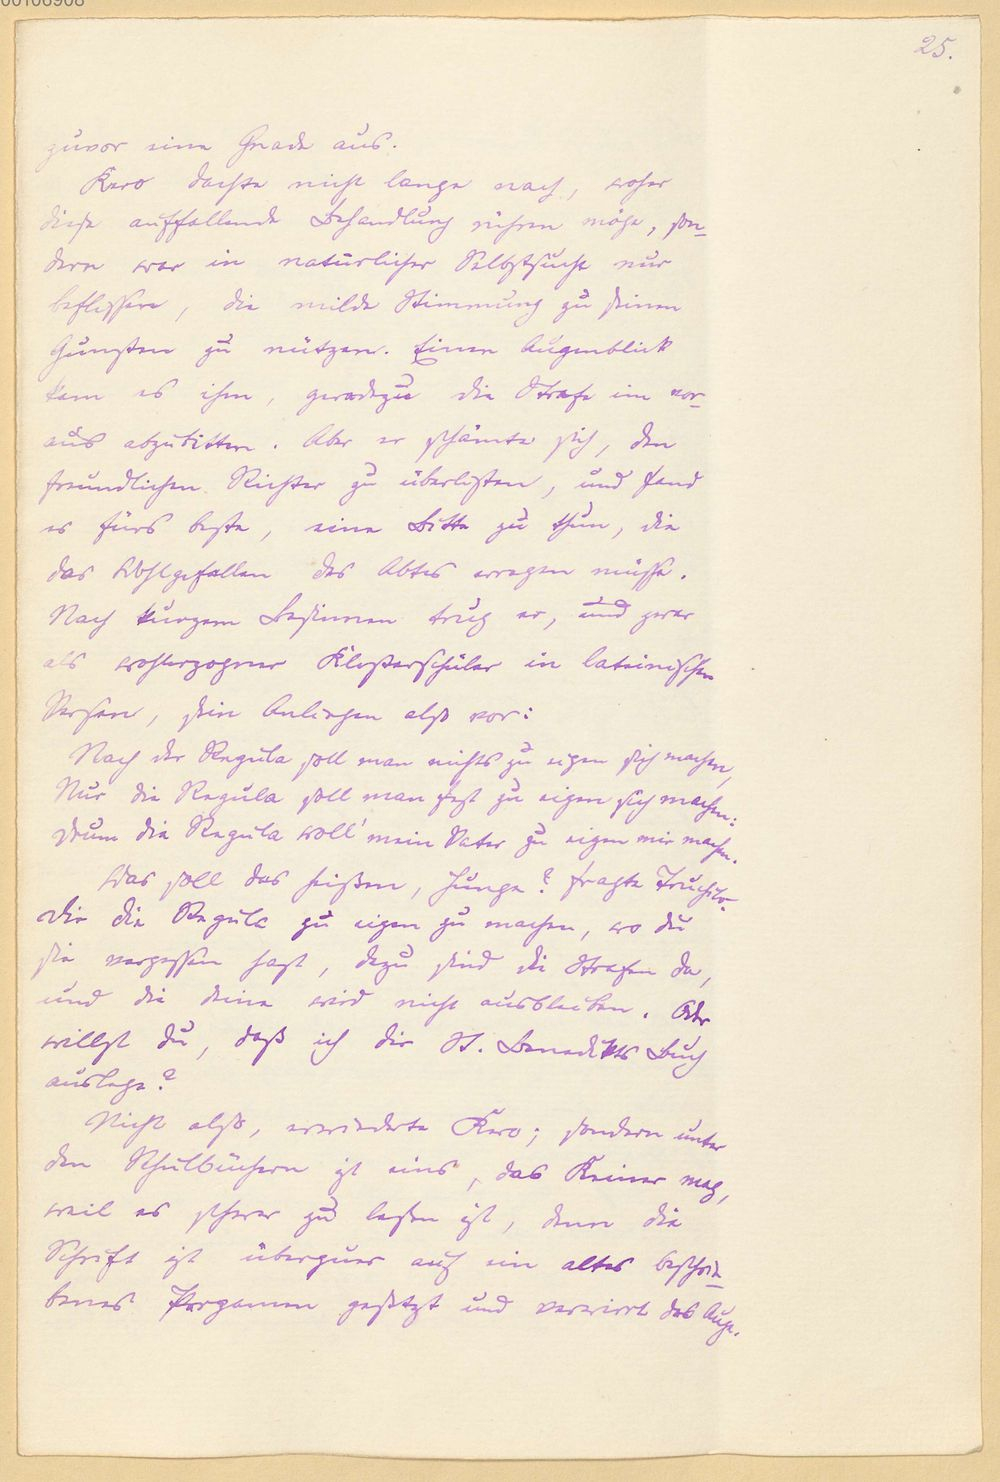 00106908
25.
zuvor eine Gnade aus.
Kero dachte nicht lange nach, woher
diese auffallende Behandlung rühren möge, son-
dern war in natürlicher Selbstsucht nur
beflissen, die milde Stimmung zu seinen
Gunsten zu nützen. Einen Augenblick
kam es ihm, geradezu die Strafe im vor-
aus abzubitten. Aber er schämte sich, den
freundlichen Richter zu überlisten, und fand
es fürs beste, eine Bitte zu thun, die
das Wohlgefallen des Abtes erregen müsse.
Nach kurzem Besinnen trug er, und zwar
als wohlerzogner Klosterschüler in lateinischen
Versen, sein Anliegen also vor:
Nach der Regula soll man nichts zu eigen sich machen,
Nur die Regula soll man fest zu eigen sich machen:
Drum die Regula woll' mein Vater zu eigen mir machen.
Was soll das heißen, Junge? fragte Truchilo.
Dir die Regula zu eigen zu machen, wo du
sie vergessen hast, dazu sind die Strafen da,
und die deine wird nicht ausbleiben. Oder
willst du, daß ich dir St. Benedikts Buch
auslege?
Nicht also, erwiederte Kero; sondern unter
den Schulbüchern ist eins, das Keiner mag,
weil es schwer zu lesen ist, denn die
Schrift ist überquer auf ein altes beschrie-
benes Pergamen gesetzt und verwirrt das Auge.